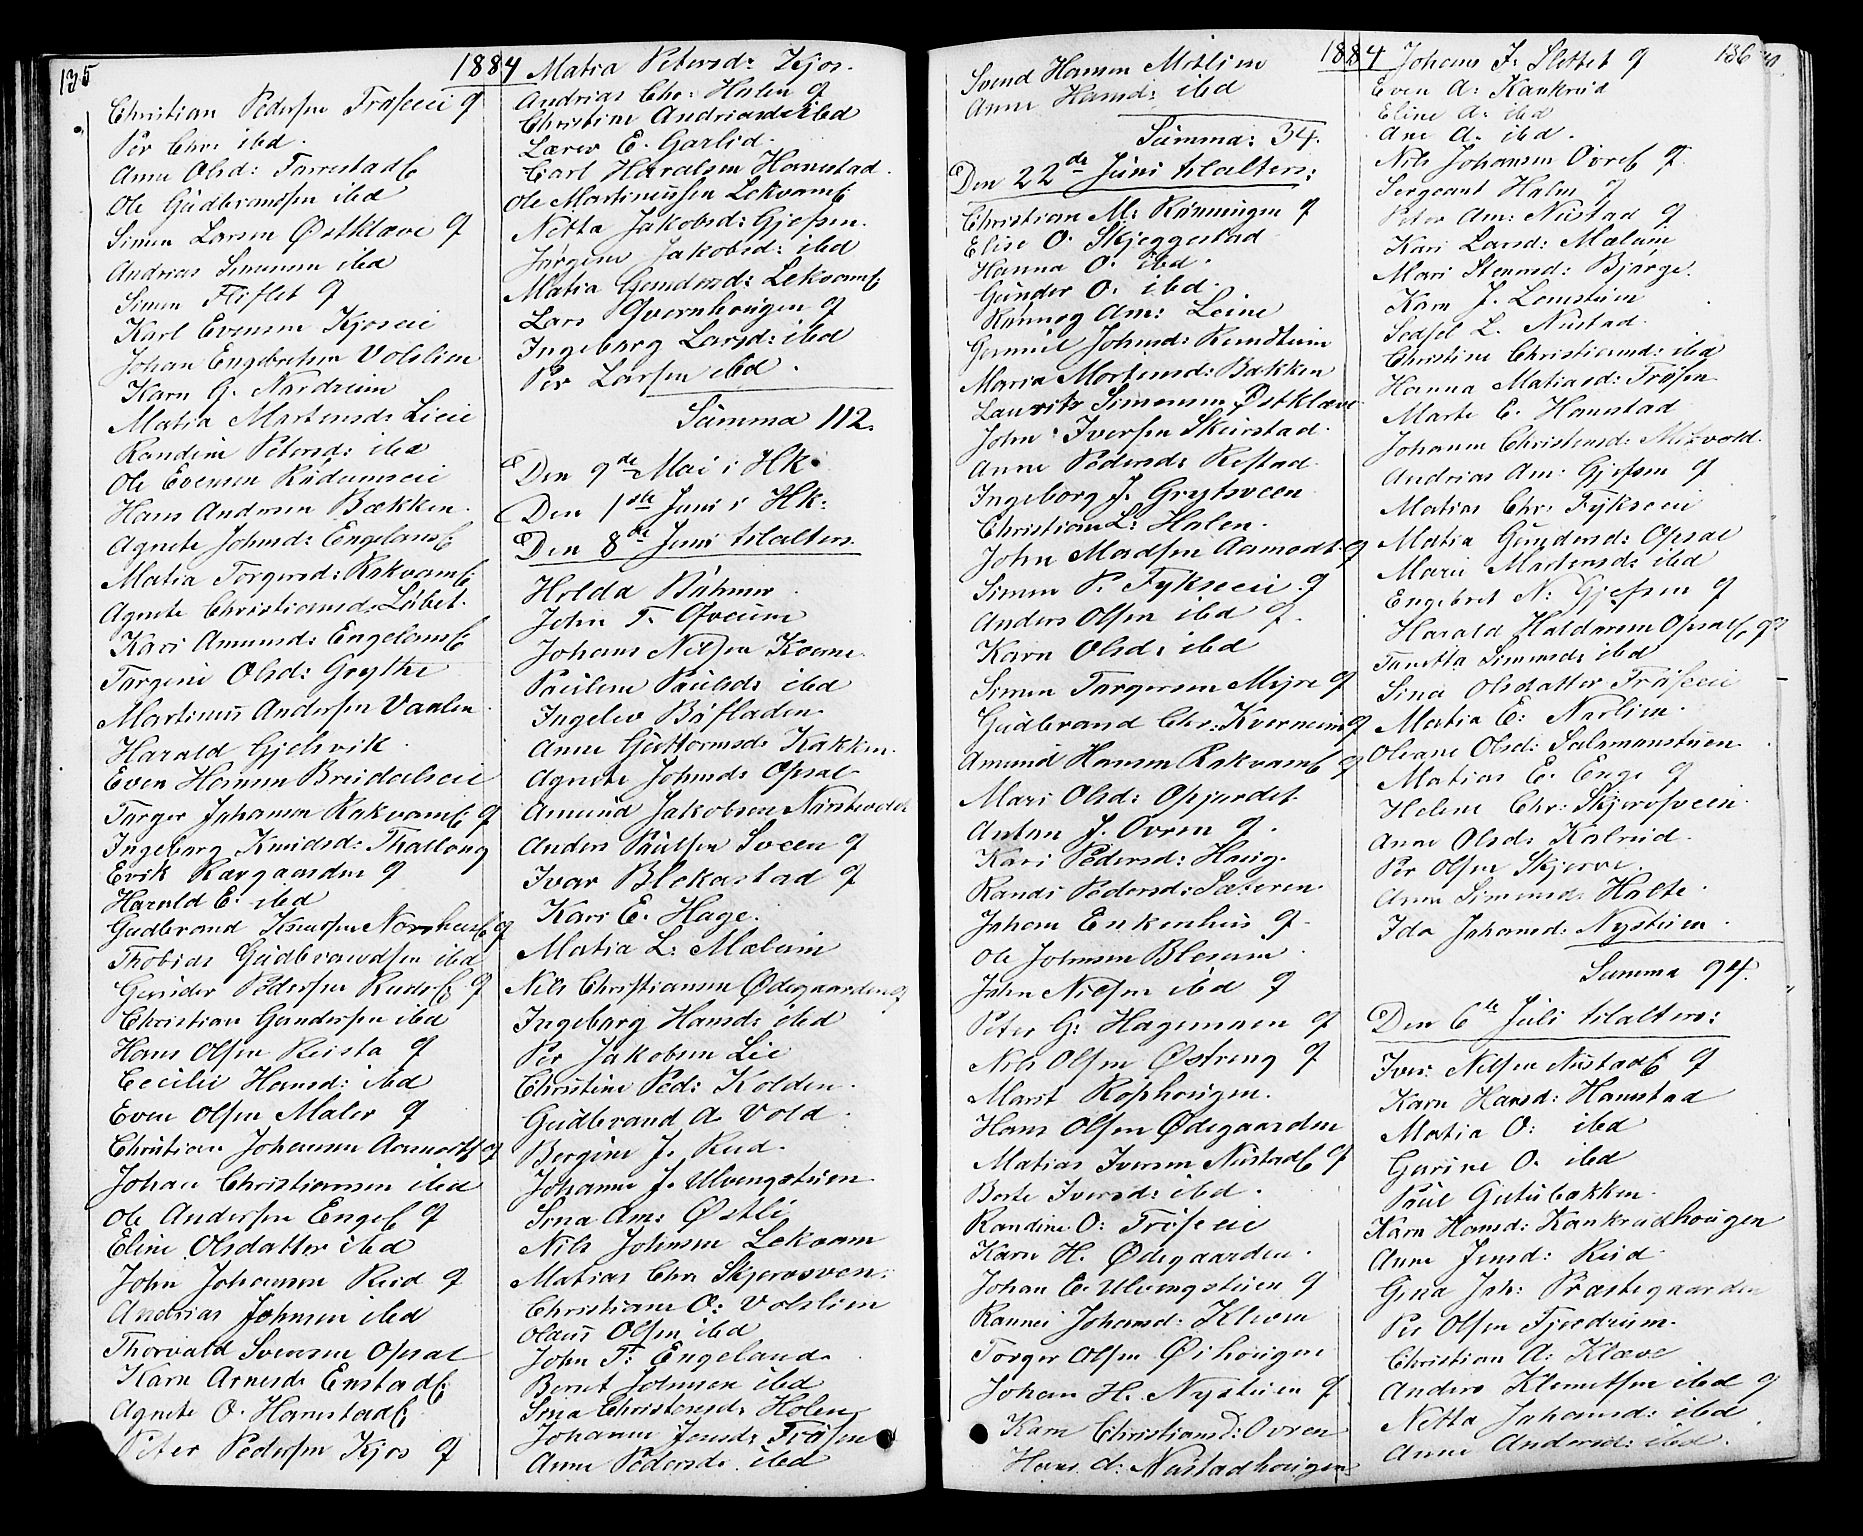 135
1884
Christian Pedersen Trøseie q
Per Chr: ibd.
Anne Olsd: Farrestad
Ole Gudbrandsen ibd
Simen Larsen Østklæve q
Andrias Simensen ibd
Simen Fliflet q
Karl Evensen Kjoseie
Johan Engebretsen Volslien
Karn G. Nordrum
Matia Mortensd: Lieie
Randine Petersd: ibd
Ole Evensen
Hans Andersen Bækken.
Agnete Johnsd: Engelan
Matia Torgersd: Rskvam
Agnete Christiansd: Løbet.
Kari Amunsd: Engelan
Torgine Olsd: Grythe
Martinus Andersen Vaalen
Harald Gjelsvik.
Even Hansen Breidalseie
Torger Johansen Rskvam q
Ingeborg Knudsd: Thallaug
Erik Rørgaarden q
Harald E. ibd
Gudbrand Knudsen q
Thobias Gudbrandsen ibd
Gunder Pedersen Ruds q
Christian Gundersen ibd
Hans Olsen Reista q
Cecilie Hansd: ibd
Even Olsen Maler q
Christian Johansen Aamodt q
Johan Christiansen ibd
Ole Andersen Enge q
Eline Olsdatter ibd
John Johansen Rud q
Andrias Johnsen ibd
Thorvald Svensen Opsal
Karn Arnesd: Enstad
Agnete O. Hamstad
Peter Pedersen Kjos q
Matia Petersd: Kjos.
Andrias Chr: Holen q
Christine Andriasd: ibd
Lærer E. Garlid.
Carl Haralsen Hamstad.
Ole Martinussen Lekvam
Netta Jakobsd: Gjefsen.
Jørgine Jakobsd: ibd
Matia Gundersd: Lekvam
Lars Qvernhougen q
Ingeborg Larsd: ibd
Per Larsen ibd.
Summa 112.
Den 9de Mai i Hk.
Den 1ste Juni i Hk:
Den 8de Juni til alters.
Holda Bøhmer
John T. Ofveum
Johans Nilsen Koene
Pauline Paulsd: ibd
Ingelev Bøfladen
Anne Guttormsd: Kakken.
Agnete Johnsd: Opsal
Amund Jakobsen
Anders Paulsen Sveen q
Ivar Blekastad q
Kari E. Hage.
Matia L: Mælum
Nils Christiansen Ødegaarden q
Ingeborg Hansd: ibd
Per Jakobsen Lie
Christine Ped: Kolden.
Gudbrand A. Vold.
Bergine J. Rud.
Johanne J. Ulvengstuen
Srna Am: Østli
Nils Johnsen Lekvam
Matias Chr Skjerosven.
Christiane O: Volslien
Olaus Olsen ibd
John T: Engeland.
Bernt Johnsen ibd
Srna Christensd: Holen
Johanne Jensd: Trøsen
Anne Pedersd: ibd
1884
136
Svend Hansen Mælien
Anne Hansd: ibd
Summa: 34.
Den 22de Juni til alters:
Christian M: Rønningen q
Elise O. Skjeggestad
Hanna O. ibd.
Gunder O. ibd.
Rønnog Am: Leine
Gunnil Johnsd: Rundtuin
Maria Mortensd: Bakken
Laurits Simensen Østklæve
John Iversen Skurstad.
Anne Pedersd: Rostad.
Ingeborg J. Grytsveen
Christian L: Holen.
John Madsen Aamodt q
Simen P. Fykseeie q
Anders Olsen ibd q.
Karn Olsd: ibd
Simen Torgersen Myre q
Gudbrand Chr: Kverneim q
Amund Hansen Rskvam q
Mari Olsd: Opjordet.
Anton J. Ovren q.
Kari Pedersd: Haug.
Randi Pedersd: Sæteren.
Johan Enkenhus q
Ole Johnsen Blesum
John Nilsen ibd q
Peter G: Hagemoen q
Nils Olsen Østreng q
Marit Rophougen.
Hans Olsen Ødegaarden
Matias Iversen Nustad q
Berte Iversd: ibd.
Randine O: Trøseie
Karn H. Ødegaarden.
Johan E. Ulvengstuen q
Rannei Johansd: Kleven
Torger Olsen Øihougen
Johan H. Nystuen q
Karn Christiansd: Ovren
Hans A: Nustadhougen
Johans J. Slettet q
Even A: Kankrud
Eline A: ibd
Ane A. ibd.
Nils Johansen Øvre q
Sergeant Holm q
Peter Am: Nustad q
Kari Larsd: Mælum
Mari Stensd: Bjørge.
Karn J. Lomstuen
Sedsel L. Nustad.
Christine Christiansd: ibd
Hanna Matiasd: Trøsen
Marte E. Hamstad
Johanne Christensd: Mesvold.
Andrias Am: Gjefsen q
Matias Chr: Fykseeie
Matia Gundersd: Opsal
Mari Mortensd: ibd
Engebret N: Gjefsen q
Harald Haldorsen Opsal q
Tanetta Simensd: ibd
Sina Olsdatter Trøseeie
Matia E: Norlien.
Oleane Olsd: Salomonstuen.
Matias E. Enge q
Helene Chr: Skjerosveen.
Anne Olsd: Kalrud.
Per Olsen Skjerve.
Anne Simensd: Holte.
Ida Johansd: Nystuen.
Summa 94.
Den 6te Juli til alters:
Iver Nilsen Nustad q
Karn Hansd: Hamstad
Matia O: ibd
Gurine O. ibd
Paul Gutubakken.
Karn Hansd: Kankrudhougen
Anne Jensd: Rud.
Gina Joh: Prestegaarden
Per Olsen Fjerdrum.
Christian A: Klæve
Anders Klemetsen ibd q
Netta Johansd: ibd
Anne Andersd: ibd.